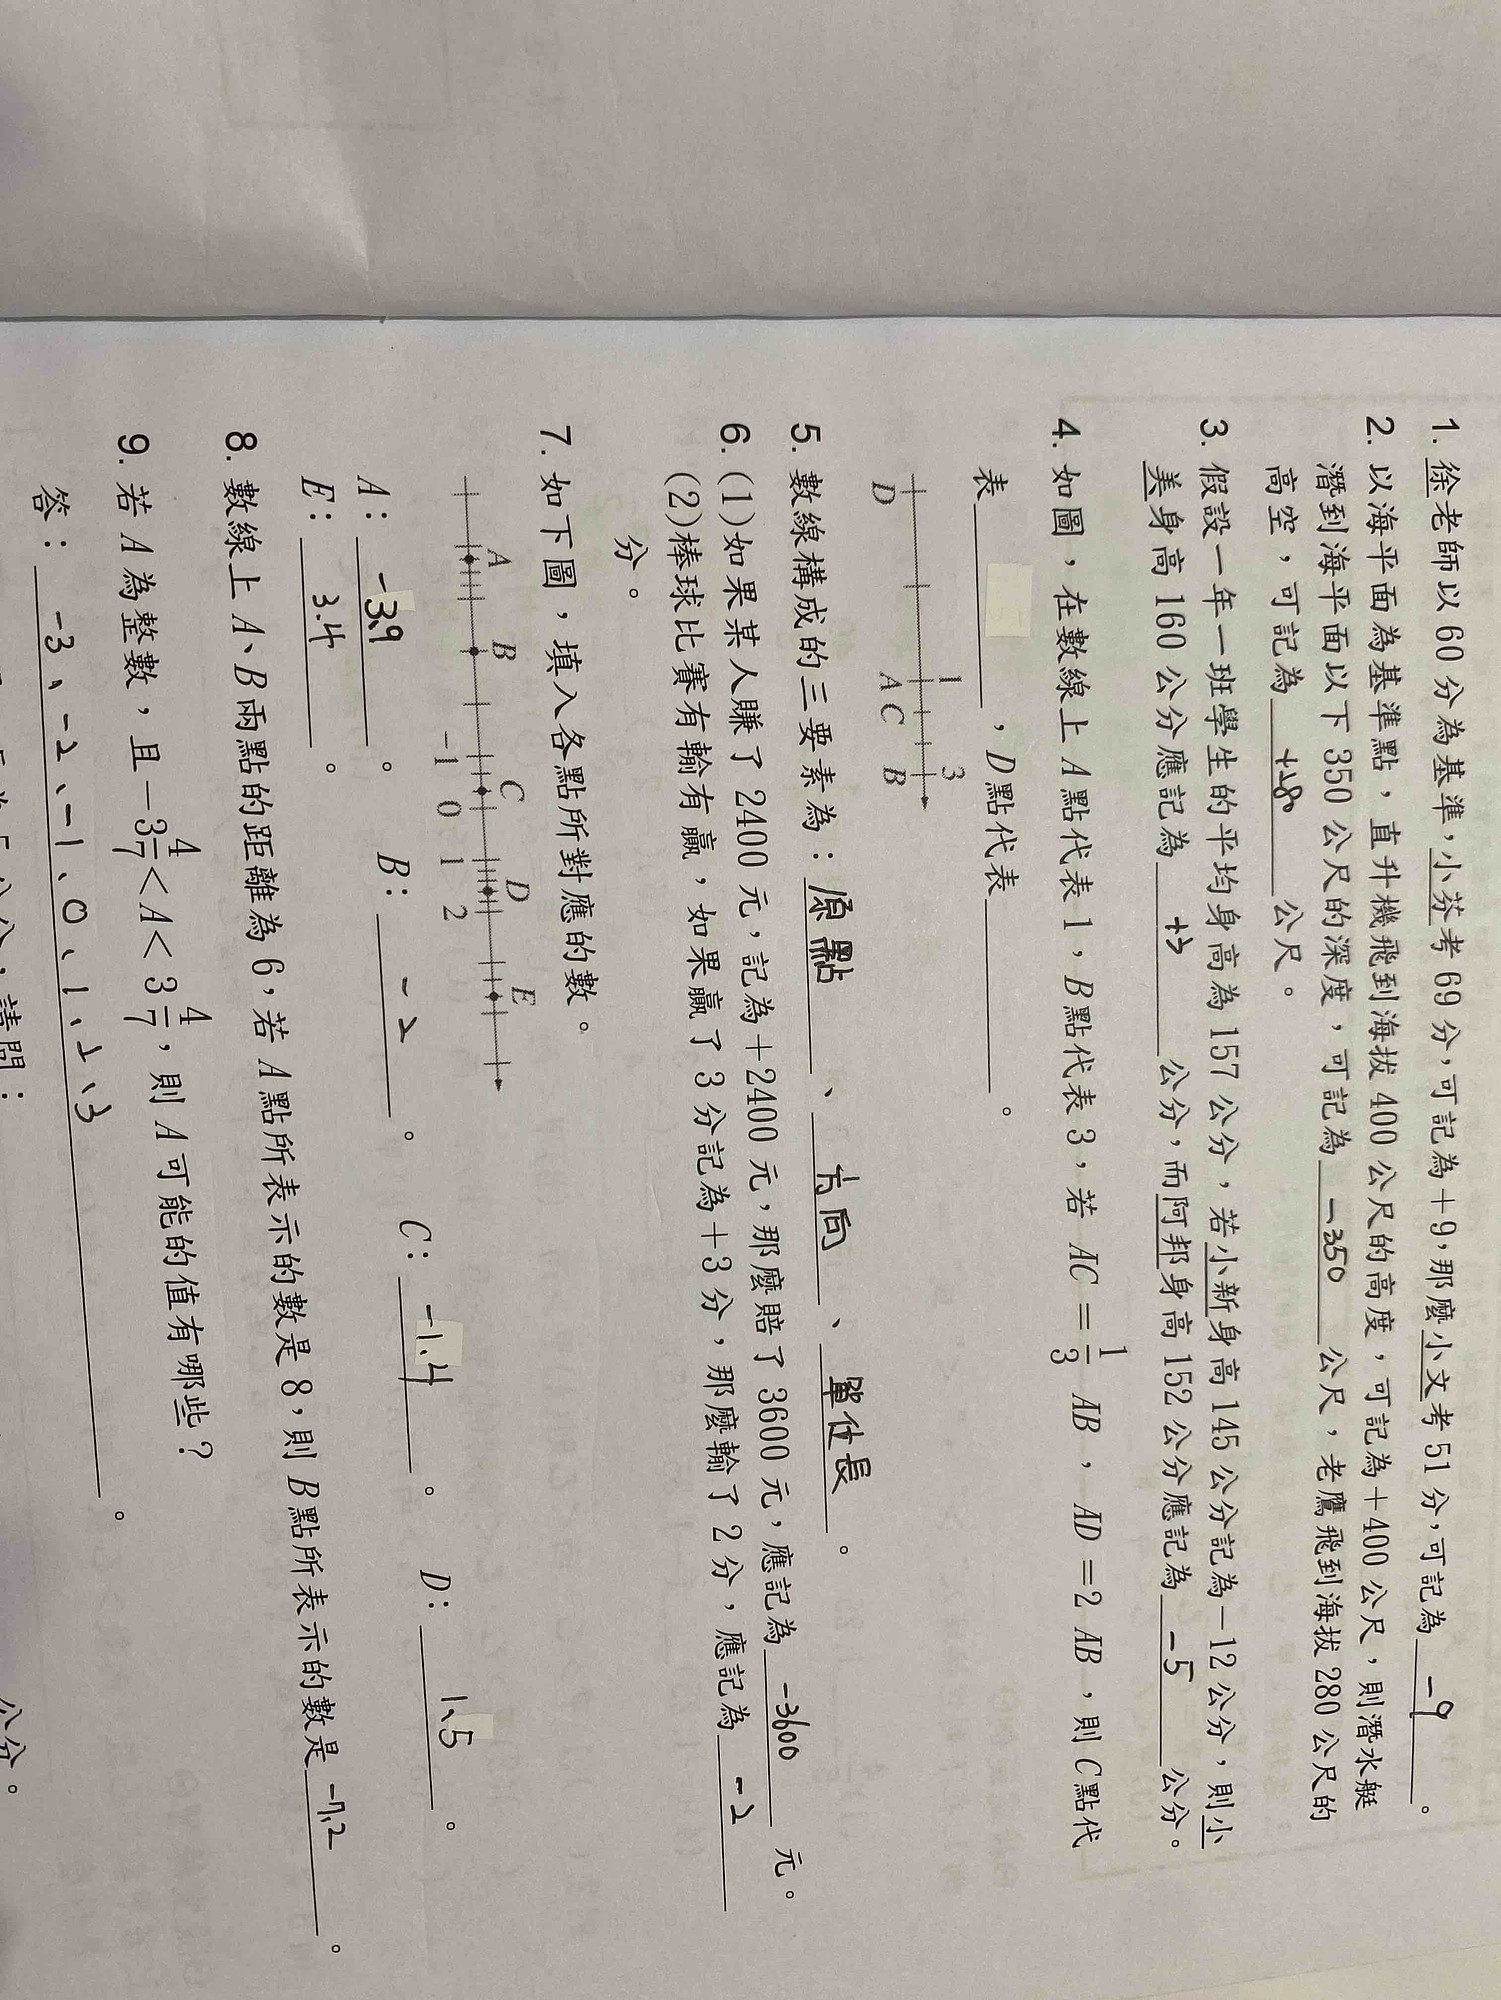 1. 徐老師以 60 分為基準，小芬考 69 分，可記為＋9，那麼小文考 51 分，可記為 -9 。
2. 以海平面為基準點，直升機飛到海拔 400 公尺的高度，可記為＋400 公尺，則潛水艇
潛到海平面以下 350 公尺的深度，可記為 -350 公尺，老鷹飛到海拔 280 公尺的
高空，可記為 公尺。
3. 假設一年一班學生的平均身高為 157 公分，若小新身高 145 公分記為－12 公分，則小
美身高 160 公分應記為 +3 公分，而阿邦身高 152 公分應記為 -5 公分。
4. 如圖，在數線上 A 點代表 1，B 點代表 3，若 AC＝1/3 AB，AD＝2 AB，則 C 點代
表 ，D 點代表 。
1 3
D A C B
5. 數線構成的三要素為： 原點 、 方向 、 單位長 。
6. (1)如果某人賺了 2400 元，記為＋2400 元，那麼賠了 3600 元，應記為 -3600 元。
(2)棒球比賽有輸有贏，如果贏了 3 分記為＋3 分，那麼輸了 2 分，應記為 -2
分。
7. 如下圖，填入各點所對應的數。
A B C D E
-1 0 1 2
A： -3.9 。 B： -2 。 C： -1.4 。 D： 1.5 。
E： 3.4 。
8. 數線上 A、B 兩點的距離為 6，若 A 點所表示的數是 8，則 B 點所表示的數是 -7.2 。
9. 若 A 為整數，且－3 4/7＜A＜3 4/7，則 A 可能的值有哪些？
答： -3、-2、-1、0、1、2、3 。
公分。